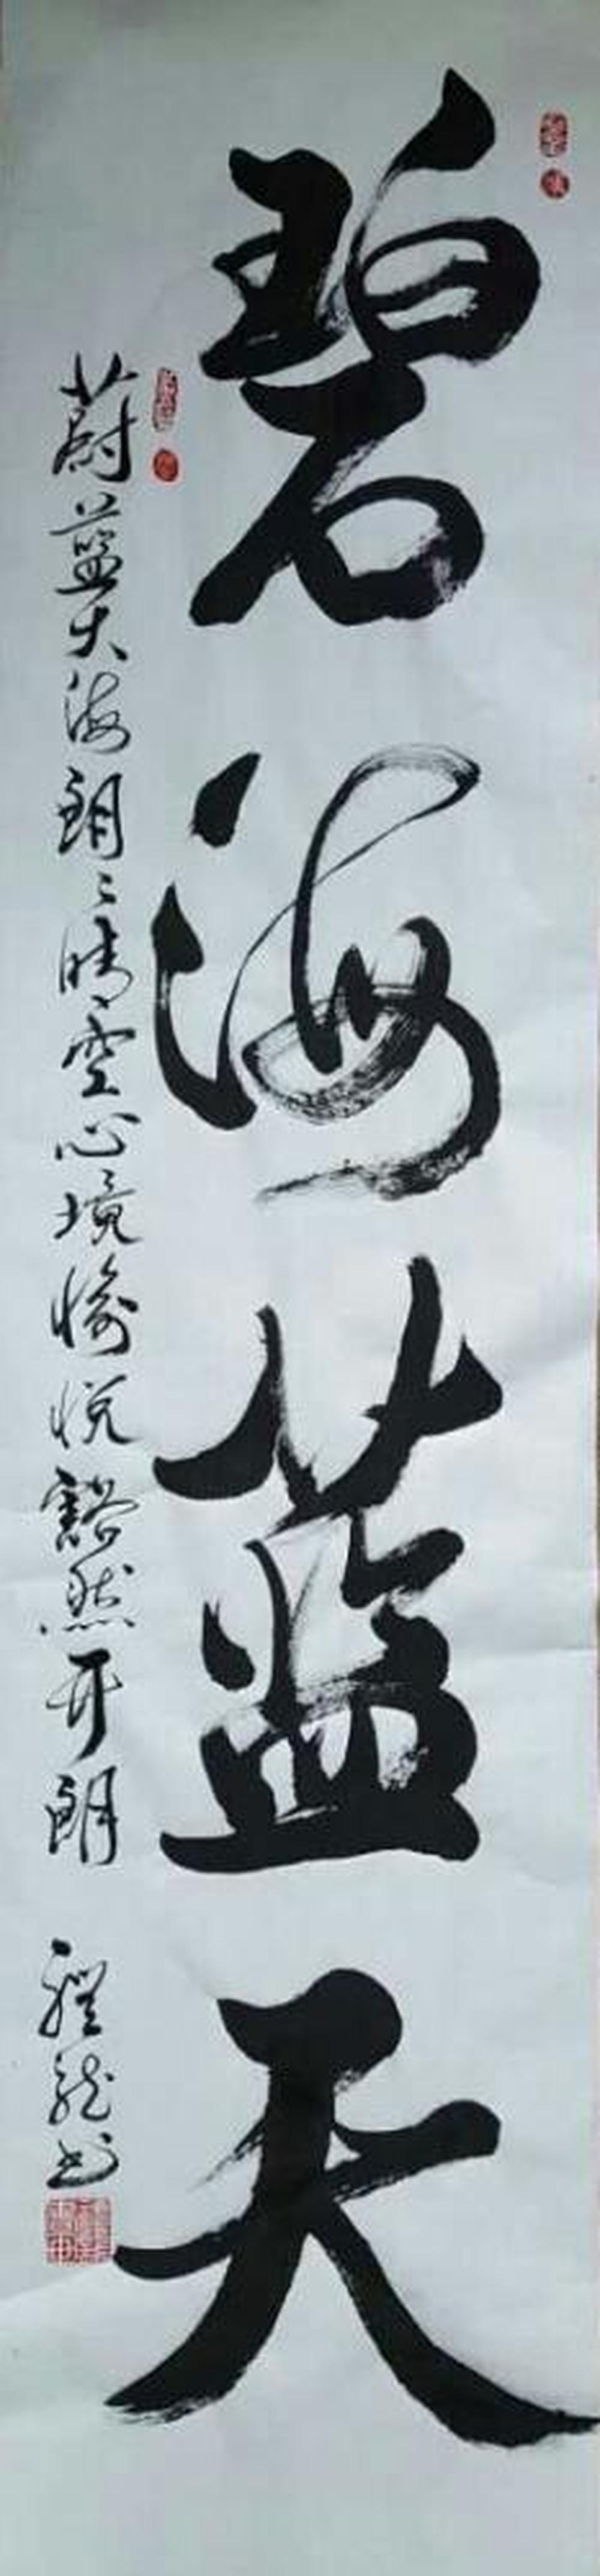 碧海蓝天
蔚蓝大海朗々晴空心境愉悦豁然开朗
龙书